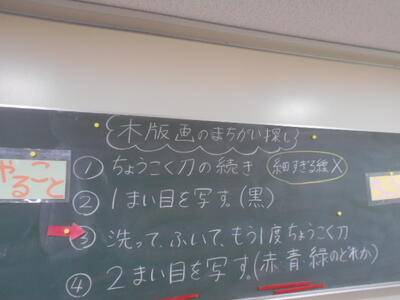 木版画のまちがい探し
やること
① ちょうこく刀の続き 細すぎる線X
② 1まい目を写す。(黒)
③ 洗って、ふいて、もう1度ちょうこく刀
④ 2まい目を写す。(赤・青・緑のどれか)